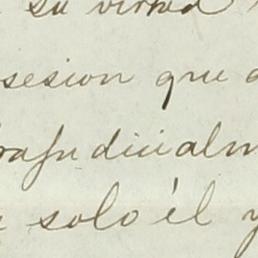 su virtud
sesion que
rajudicialm
solo él y